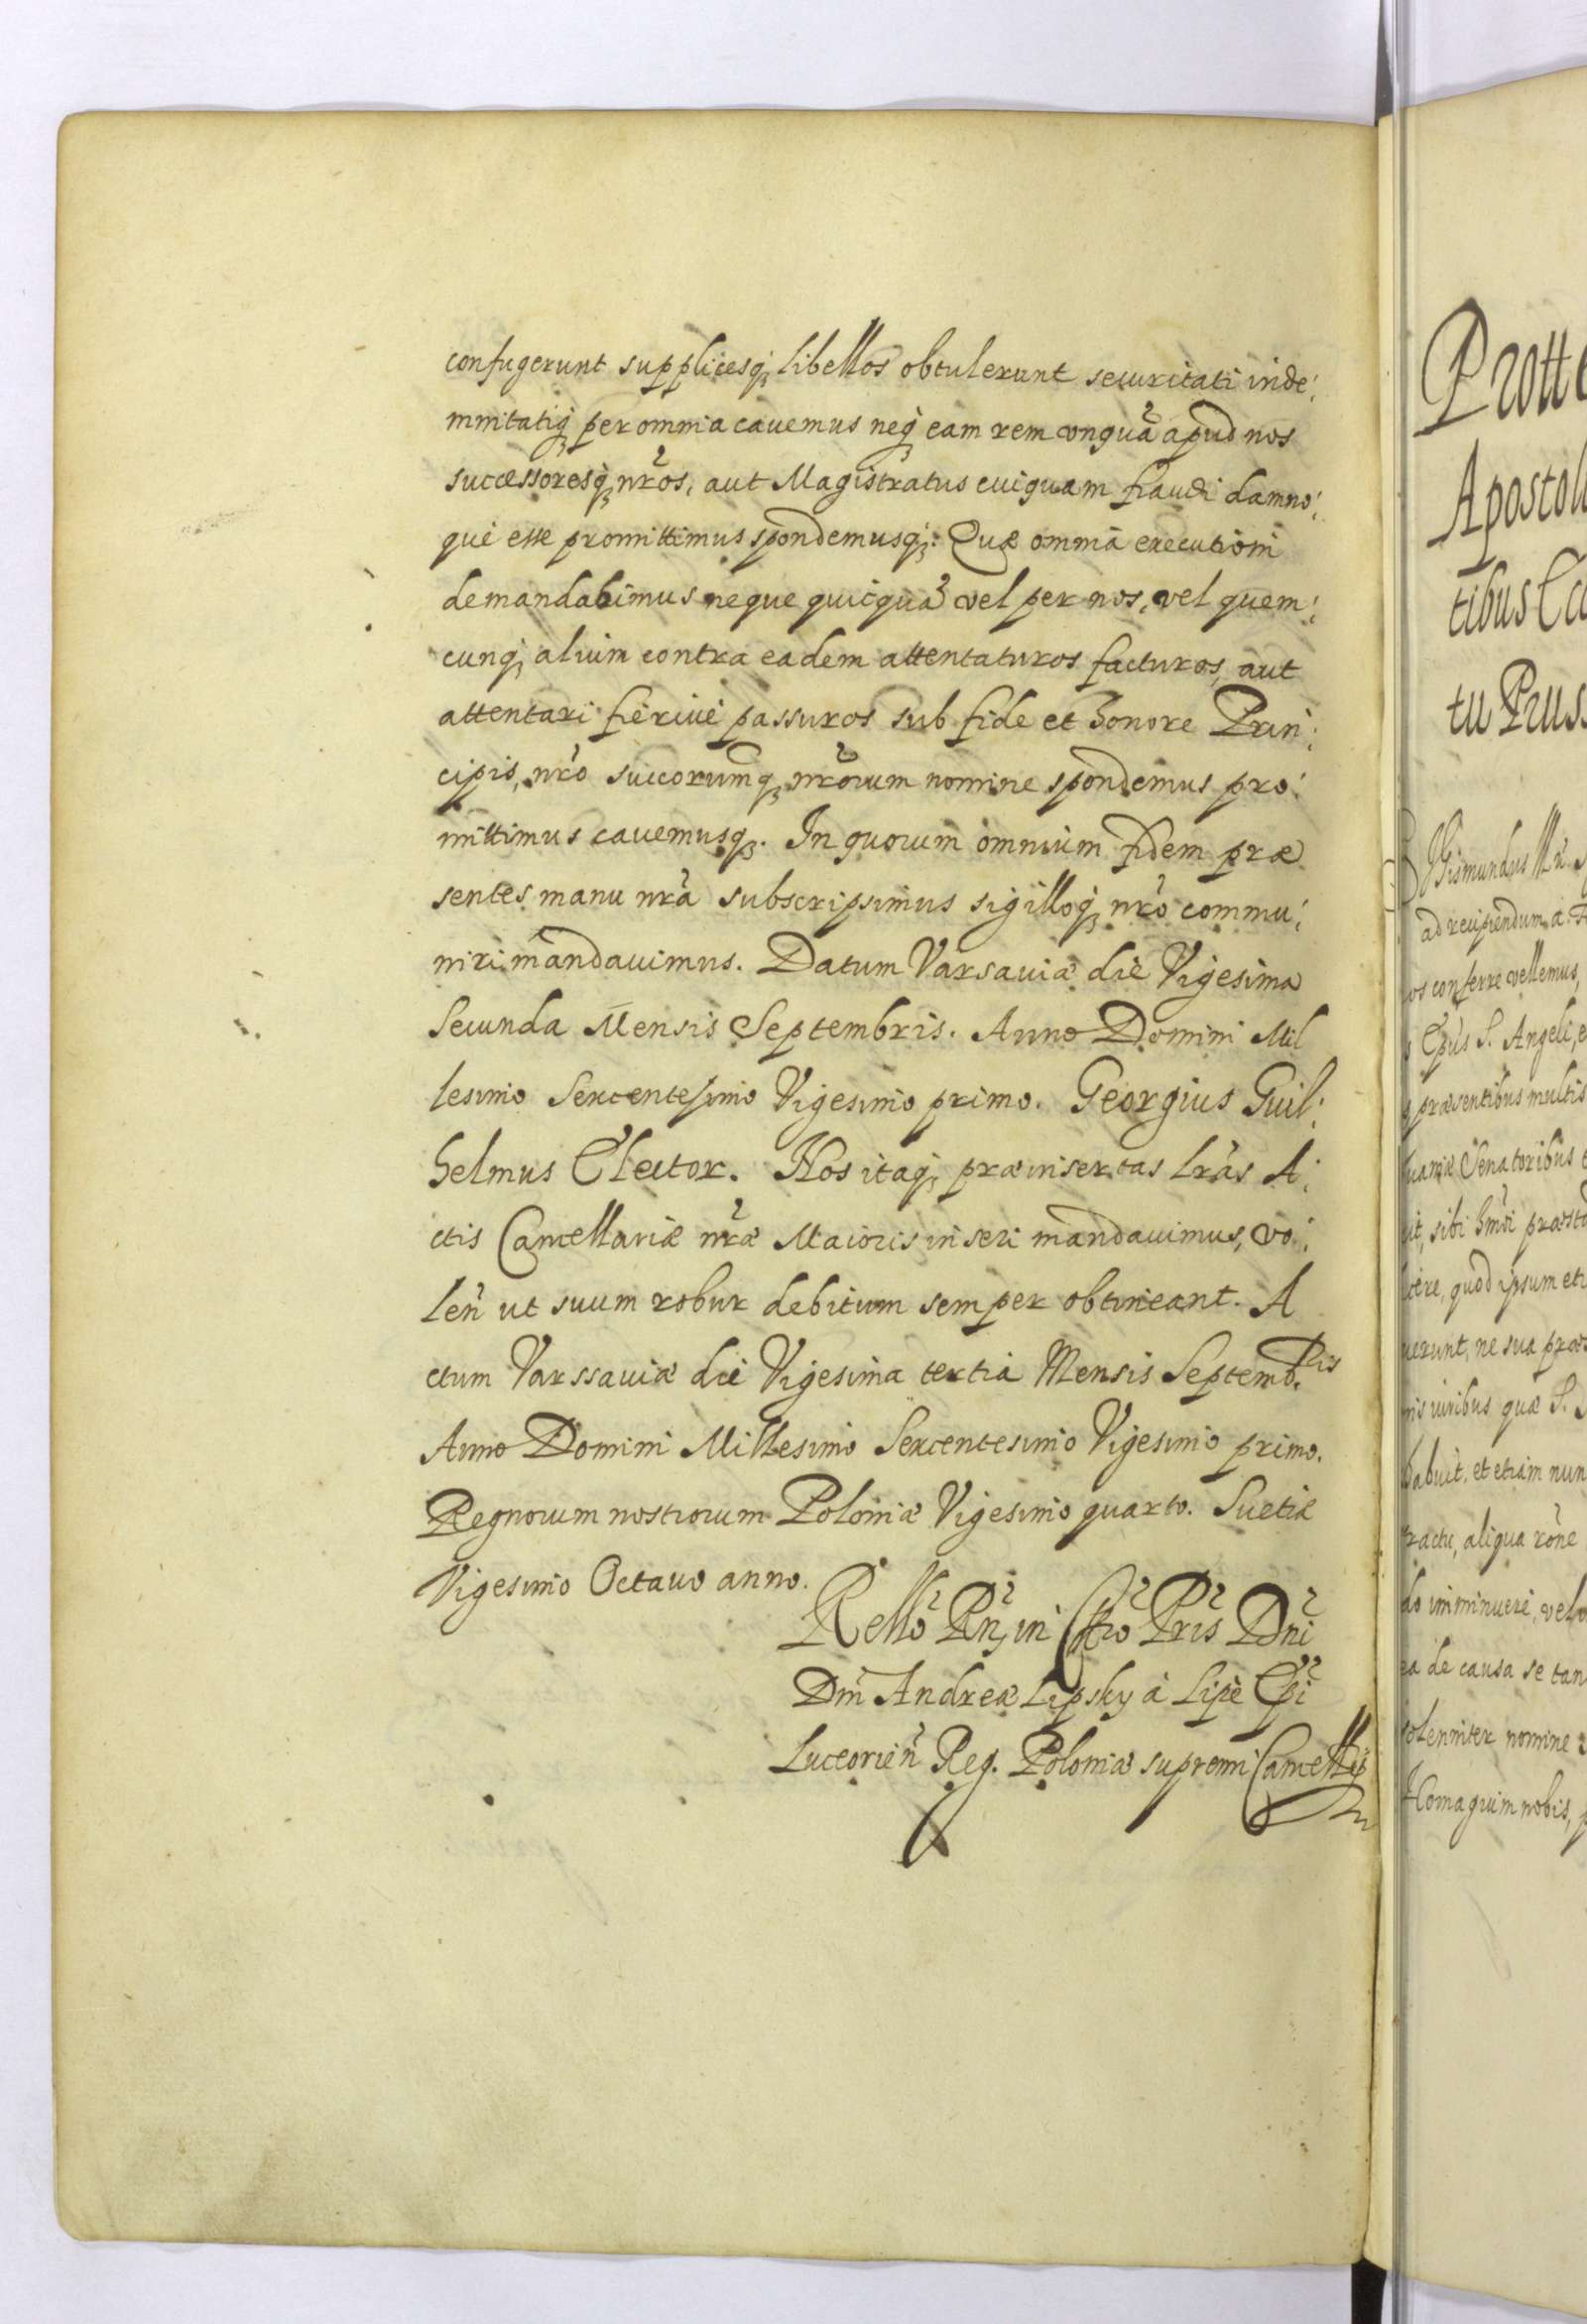 confugerunt supplicesq; libellos obtulerunt securitati inde:
mnitatiq; per omnia cauemus neq; eam rem vnquã apud nos
successoresq; nr̃os, aut Magistratus cuiquam fraudi damno:
que esse promittimus spondemusq;. Quæ omnia executioni
demandabimus neque quicquã vel per nos, vel quem:
cunq; alium contra eadem attentaturos facturos, aut
attentari fieriue passuros sub fide et honore Prin:
cipis, nr̃o succorumq; nr̃orum nomine spondemus pro:
mittimus cauemusq;. In quorum omnium fidem præ
sentes manu nr̃a subscripsimus sigilloq; nr̃o commu:
niri mandauimus. Datum Varsauiæ die Vigesima
Secunda Mensis Septembris. Anno Domini Mil
lesimo Sexcentesimo Vigesimo primo. Georgius Guil:
helmus Elector. Nos itaq; præinsertas lr̃as A:
ctis Cancellariæ nr̃æ Maioris inseri mandauimus, vo:
leñ ut suum robur debitum semper obtineant. A
ctum Varssauiæ die Vigesima tertia Mensis Septemb.ris
Anno Domini Millesimo Sexcentesimo Vigesimo primo.
Regnorum nostrorum Poloniæ Vigesimo quarto. Suetiæ
Vigesimo Octauo anno.
Rello Rñ, in Cho Pris Dni
Dni Andreæ Lipsky à Lipè Epi
Luceorieñ Reg. Poloniæ supremi Cancellrij
Prott
Apostol
tibus
tu Pruss
Gismundus
ad recipiendum a
os conferre vellemus,
Epus S. Angeli, e
præsentibus multis
uaniæ Senatoribus
it, sibi præsto
cere, quod ipsum eti
uerunt, ne sua præ
nis iuribus quæ S.
habuit, et etiam nun
tractu, aliqua rõne
do imminueri, vel
ea de causa se tan
solenniter nomine
Homagium nobis,